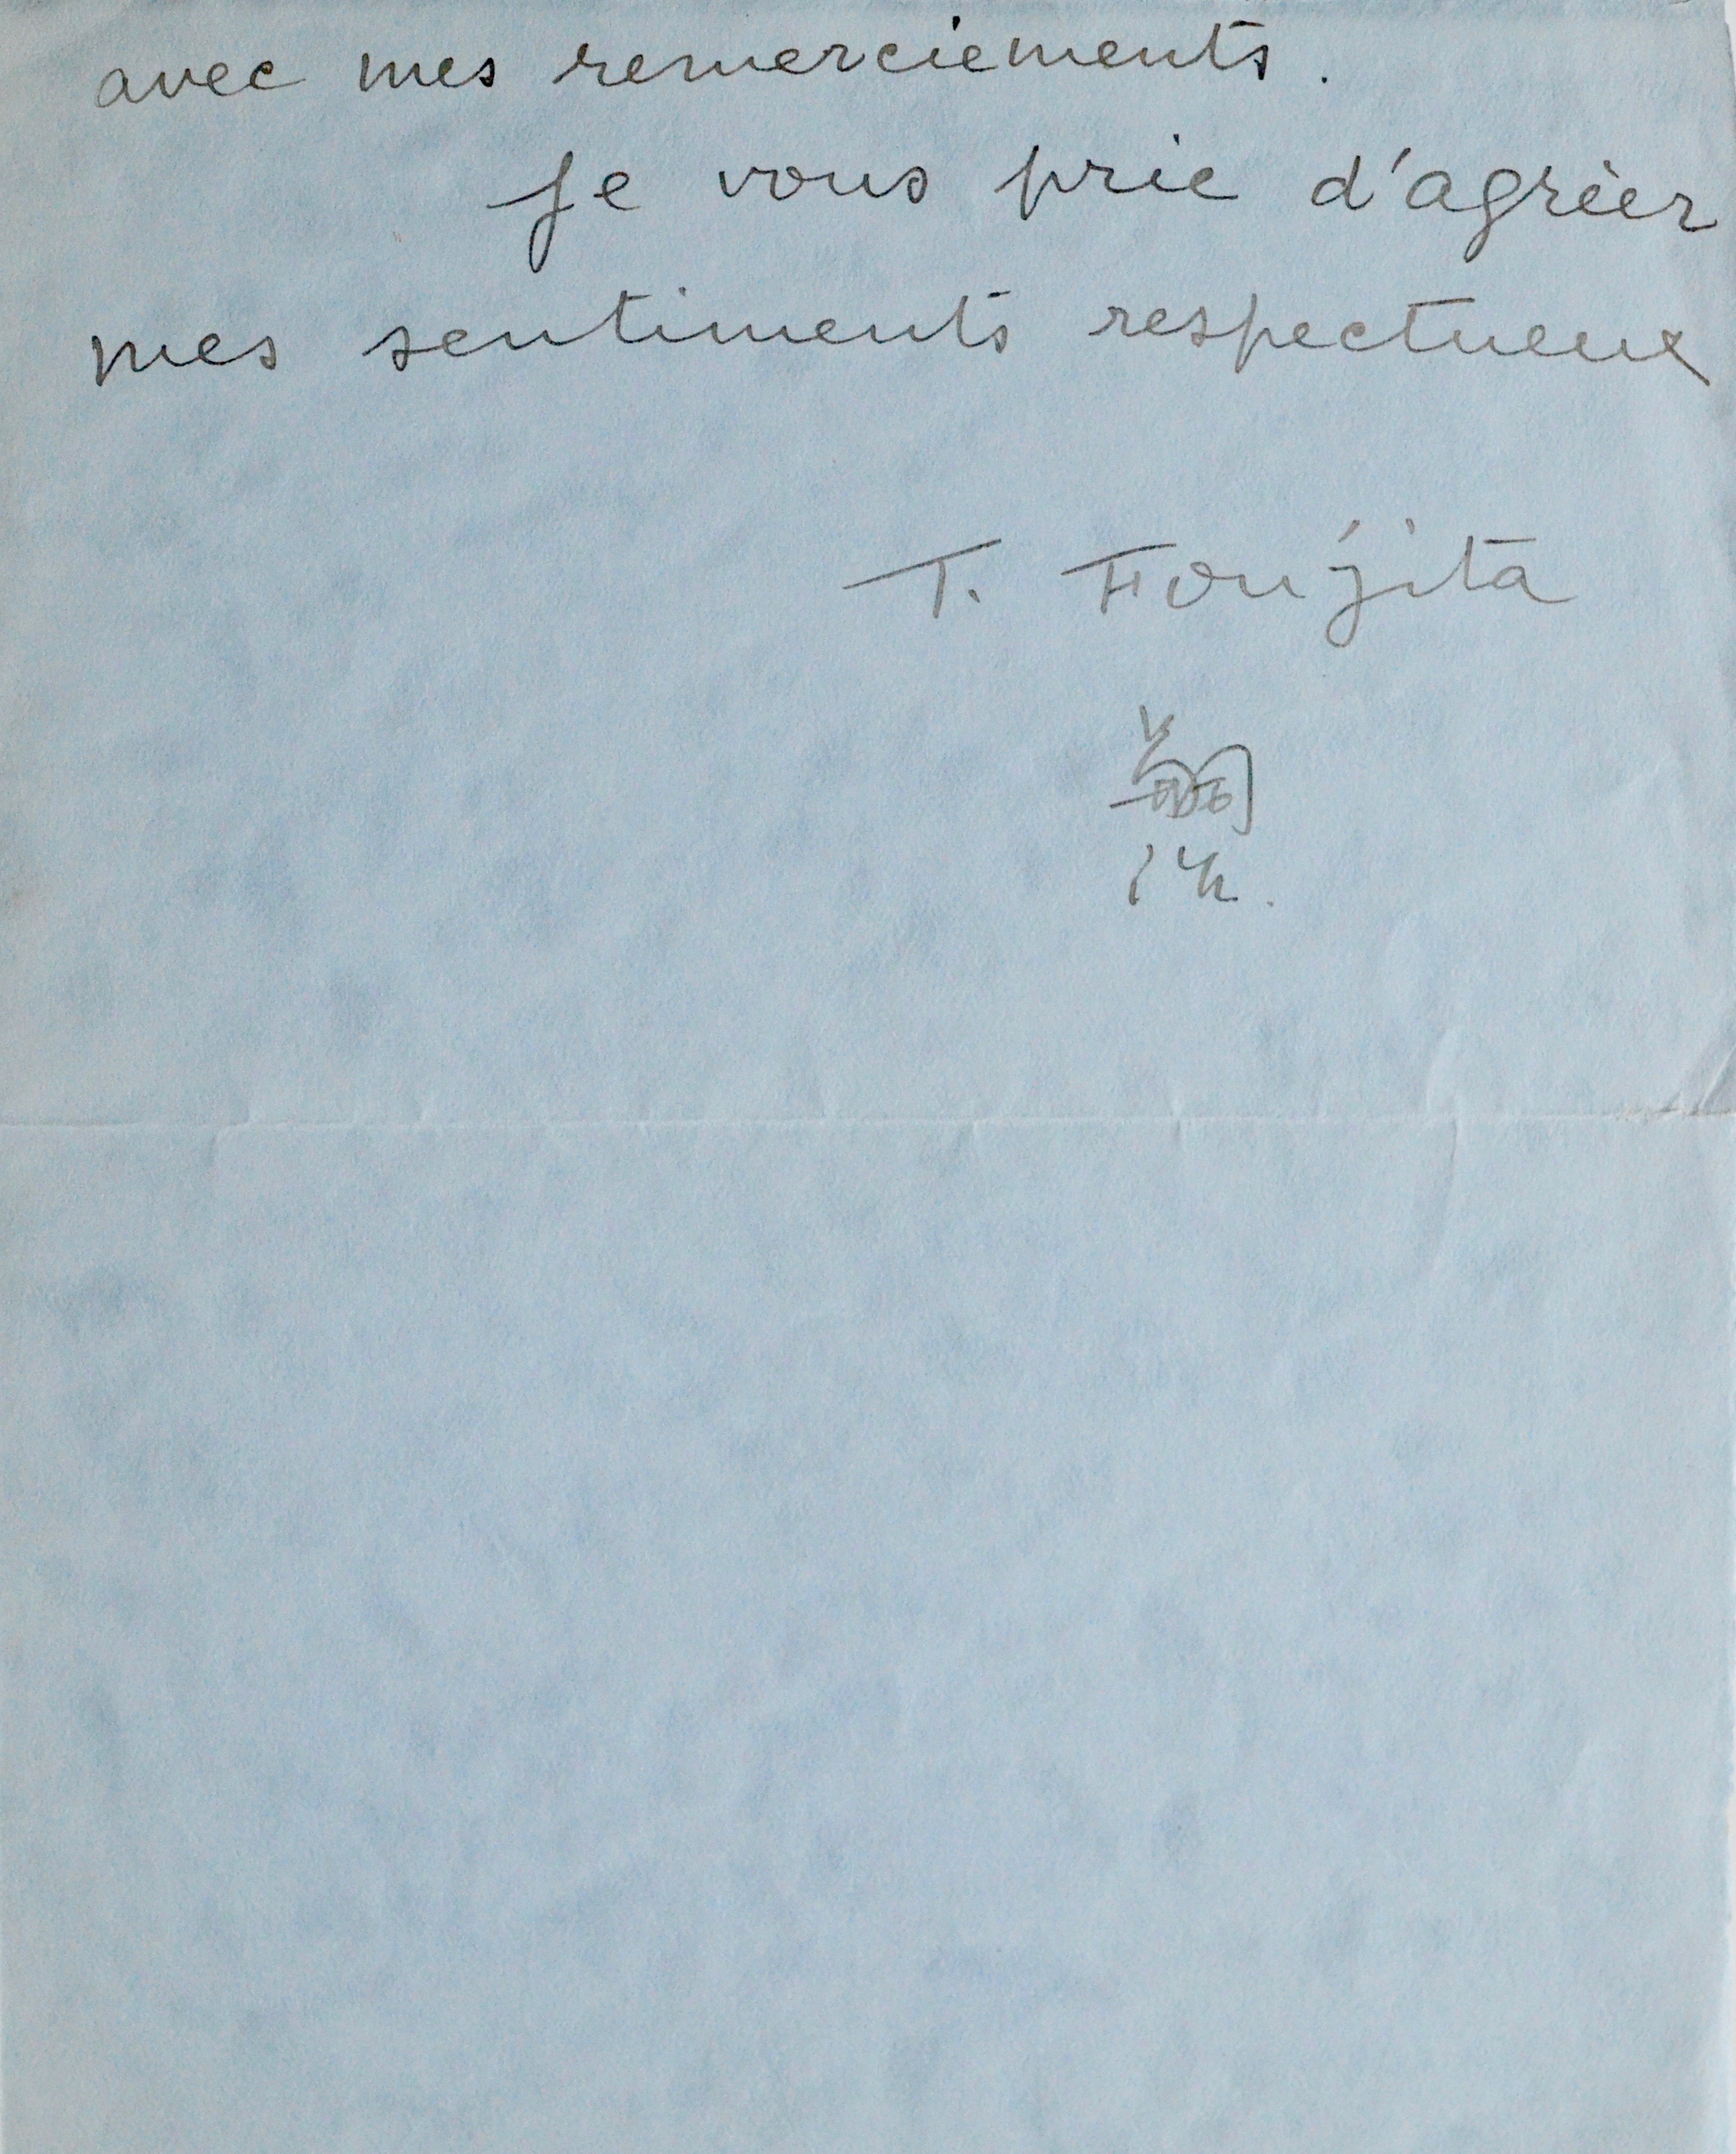 avec mes remerciements.
Je vous prie d'agréer
mes sentiments respectueux
T. Foujita